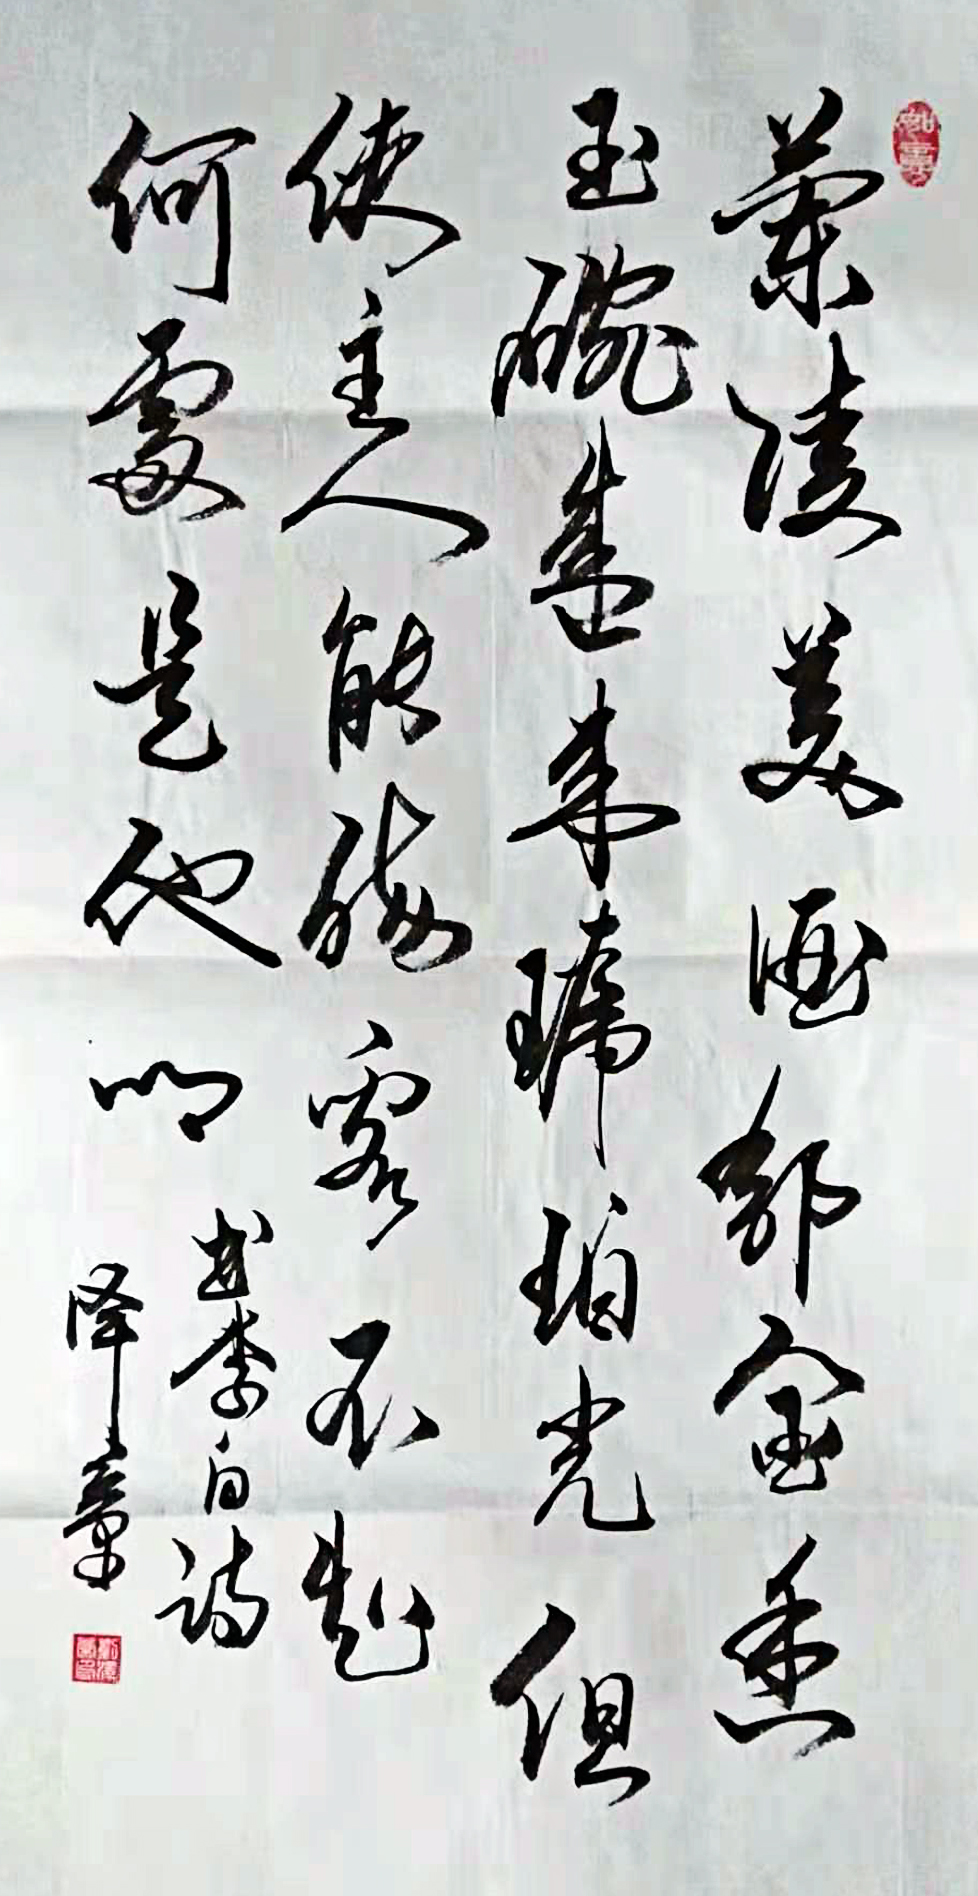 蘭陵美酒郁金香
玉碗盛来琥珀光但
使主人能醉客不知
何處是他鄉
書李白诗
泽章